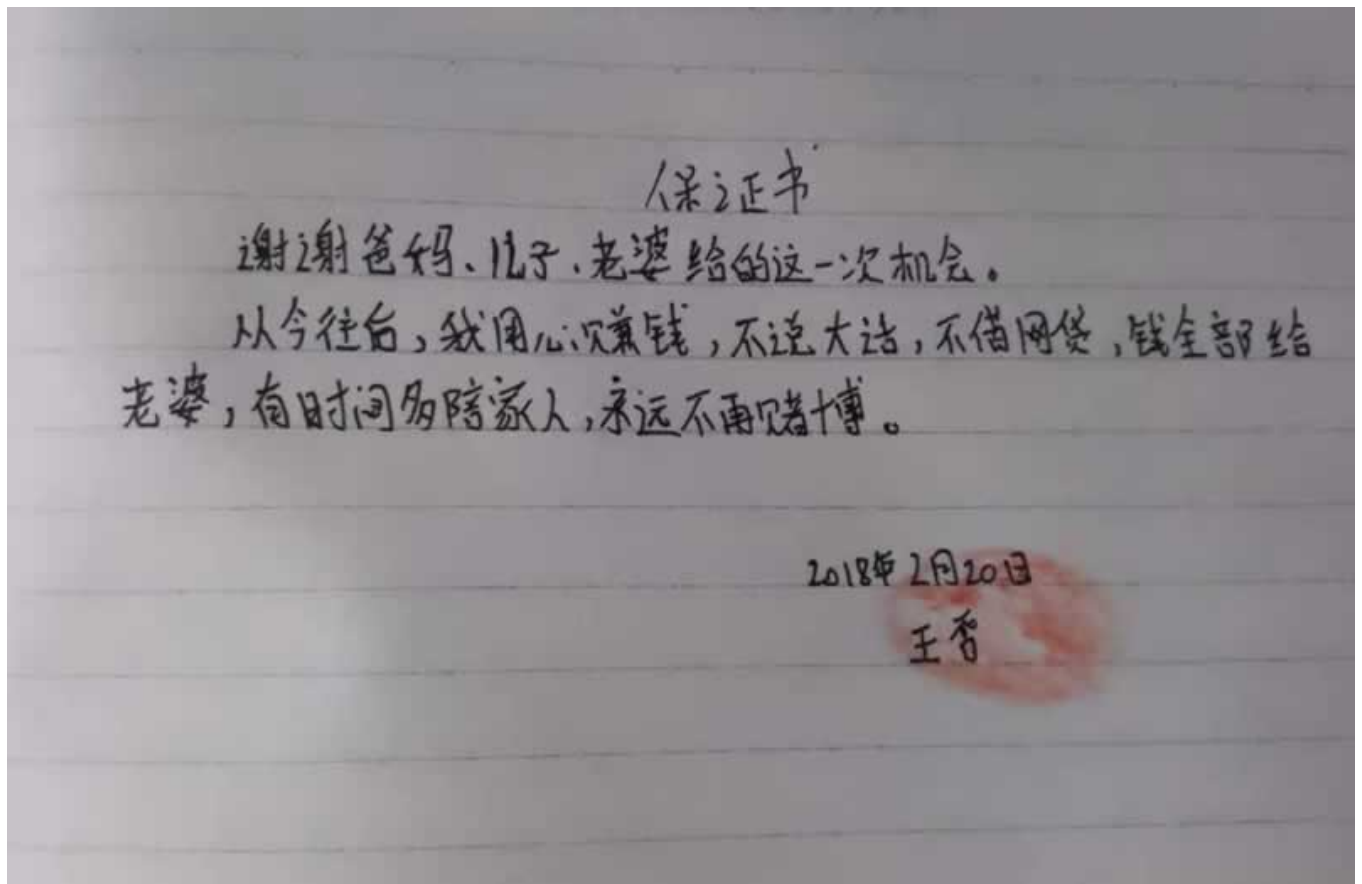 保证书
谢谢爸妈、儿子、老婆给的这一次机会。
从今往后,我用心赚钱,不说大话,不借网贷,钱全部给
老婆,有时间多陪家人,永远不再赌博。
2018年2月20日
王